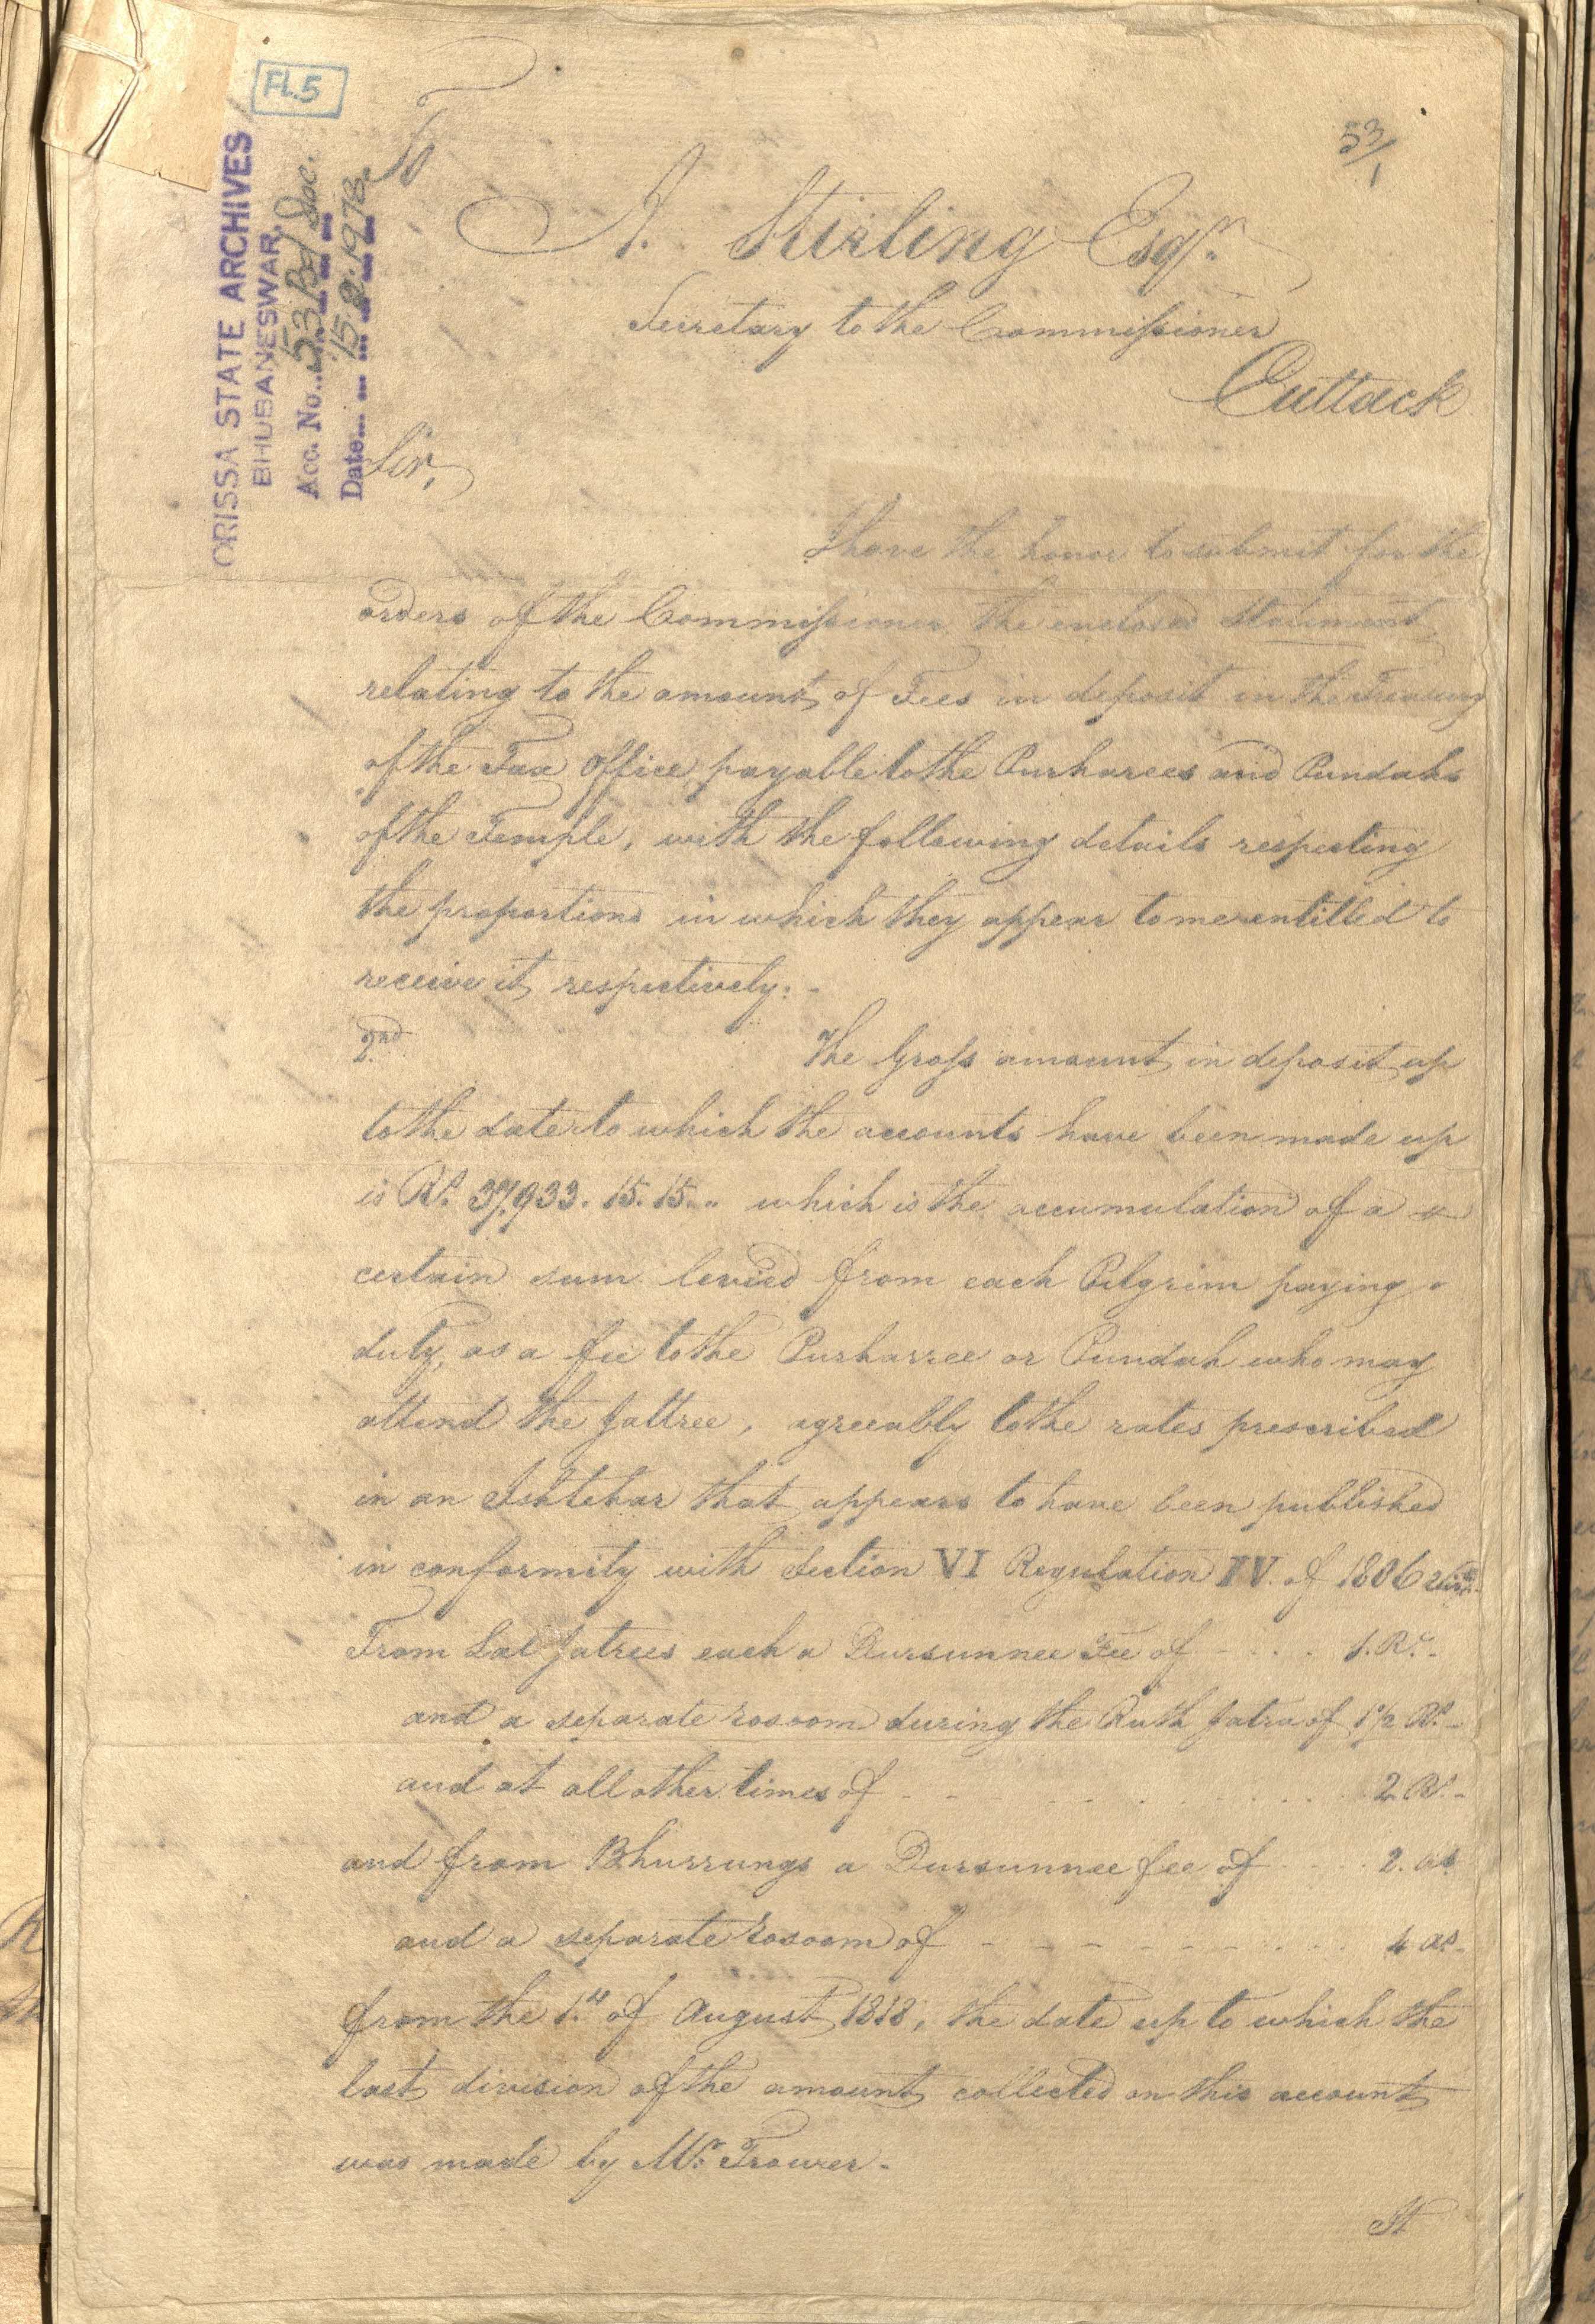 Fl.5
ORISSA STATE ARCHIVES
BHUBANESWAR.
Acc. No... 53 Bd Doc.
Date... 15.2.1973.
53/1
To
A. Stirling Esqr.
Secretary to the Commissioner
Cuttack
Sir,
I have the honor to submit for the
orders of the Commissioner the enclosed Statement
relating to the amount of Fees in deposit in the Treasury
of the Tax Office, payable to the Purharees and Pundahs
of the Temple, with the following details respecting
the proportions in which they appear to me entitled to
receive it respectively. -
2nd
The Gross amount in deposit up
to the date to which the accounts have been made up
is Rs. 37,933. 15. 15. .. which is the accumulation of a
certain sum levied from each Pilgrim paying
duty, as a fee to the Purharree or Pundah who may
attend the Jattree, agreeably to the rates prescribed
in an Ishtehar that appears to have been published
in conformity with Section VI Regulation IV. of 1806
From Lal Jatrees each a Dursunnee Fee of - . . . 1. Re. -
and a separate rosoom during the Ruth Jatra of 1 1/2 Rs. -
and at all other times of - - - - - . . . . . 2 Rs. -
and from Bhurrungs a Dursunnee fee of . . . . 2. as
and a separate rosoom of - - - - - - - . . . 4 as. -
from the 1st of August 1818, the date up to which the
last division of the amount collected on this account
was made by Mr. Trower. -
It